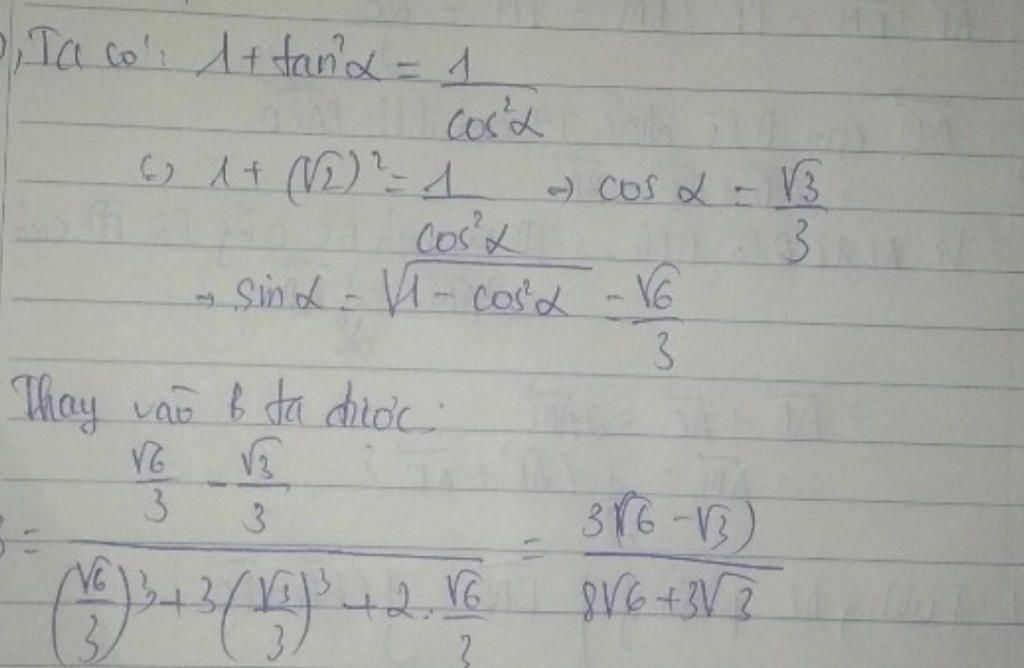 ), Ta có: 1 + tan²α = 1/cos²α
(=) 1 + (√2)² = 1/cos²α → cos α = √3/3
→ sin α = √(1 - cos²α) = √6/3
Thay vào B ta được:
B = (√6/3 - √3/3)/((√6/3)³ + 3(√3/3)³ + 2.√6/3) = 3(√6 - √3)/(8√6 + 3√3)